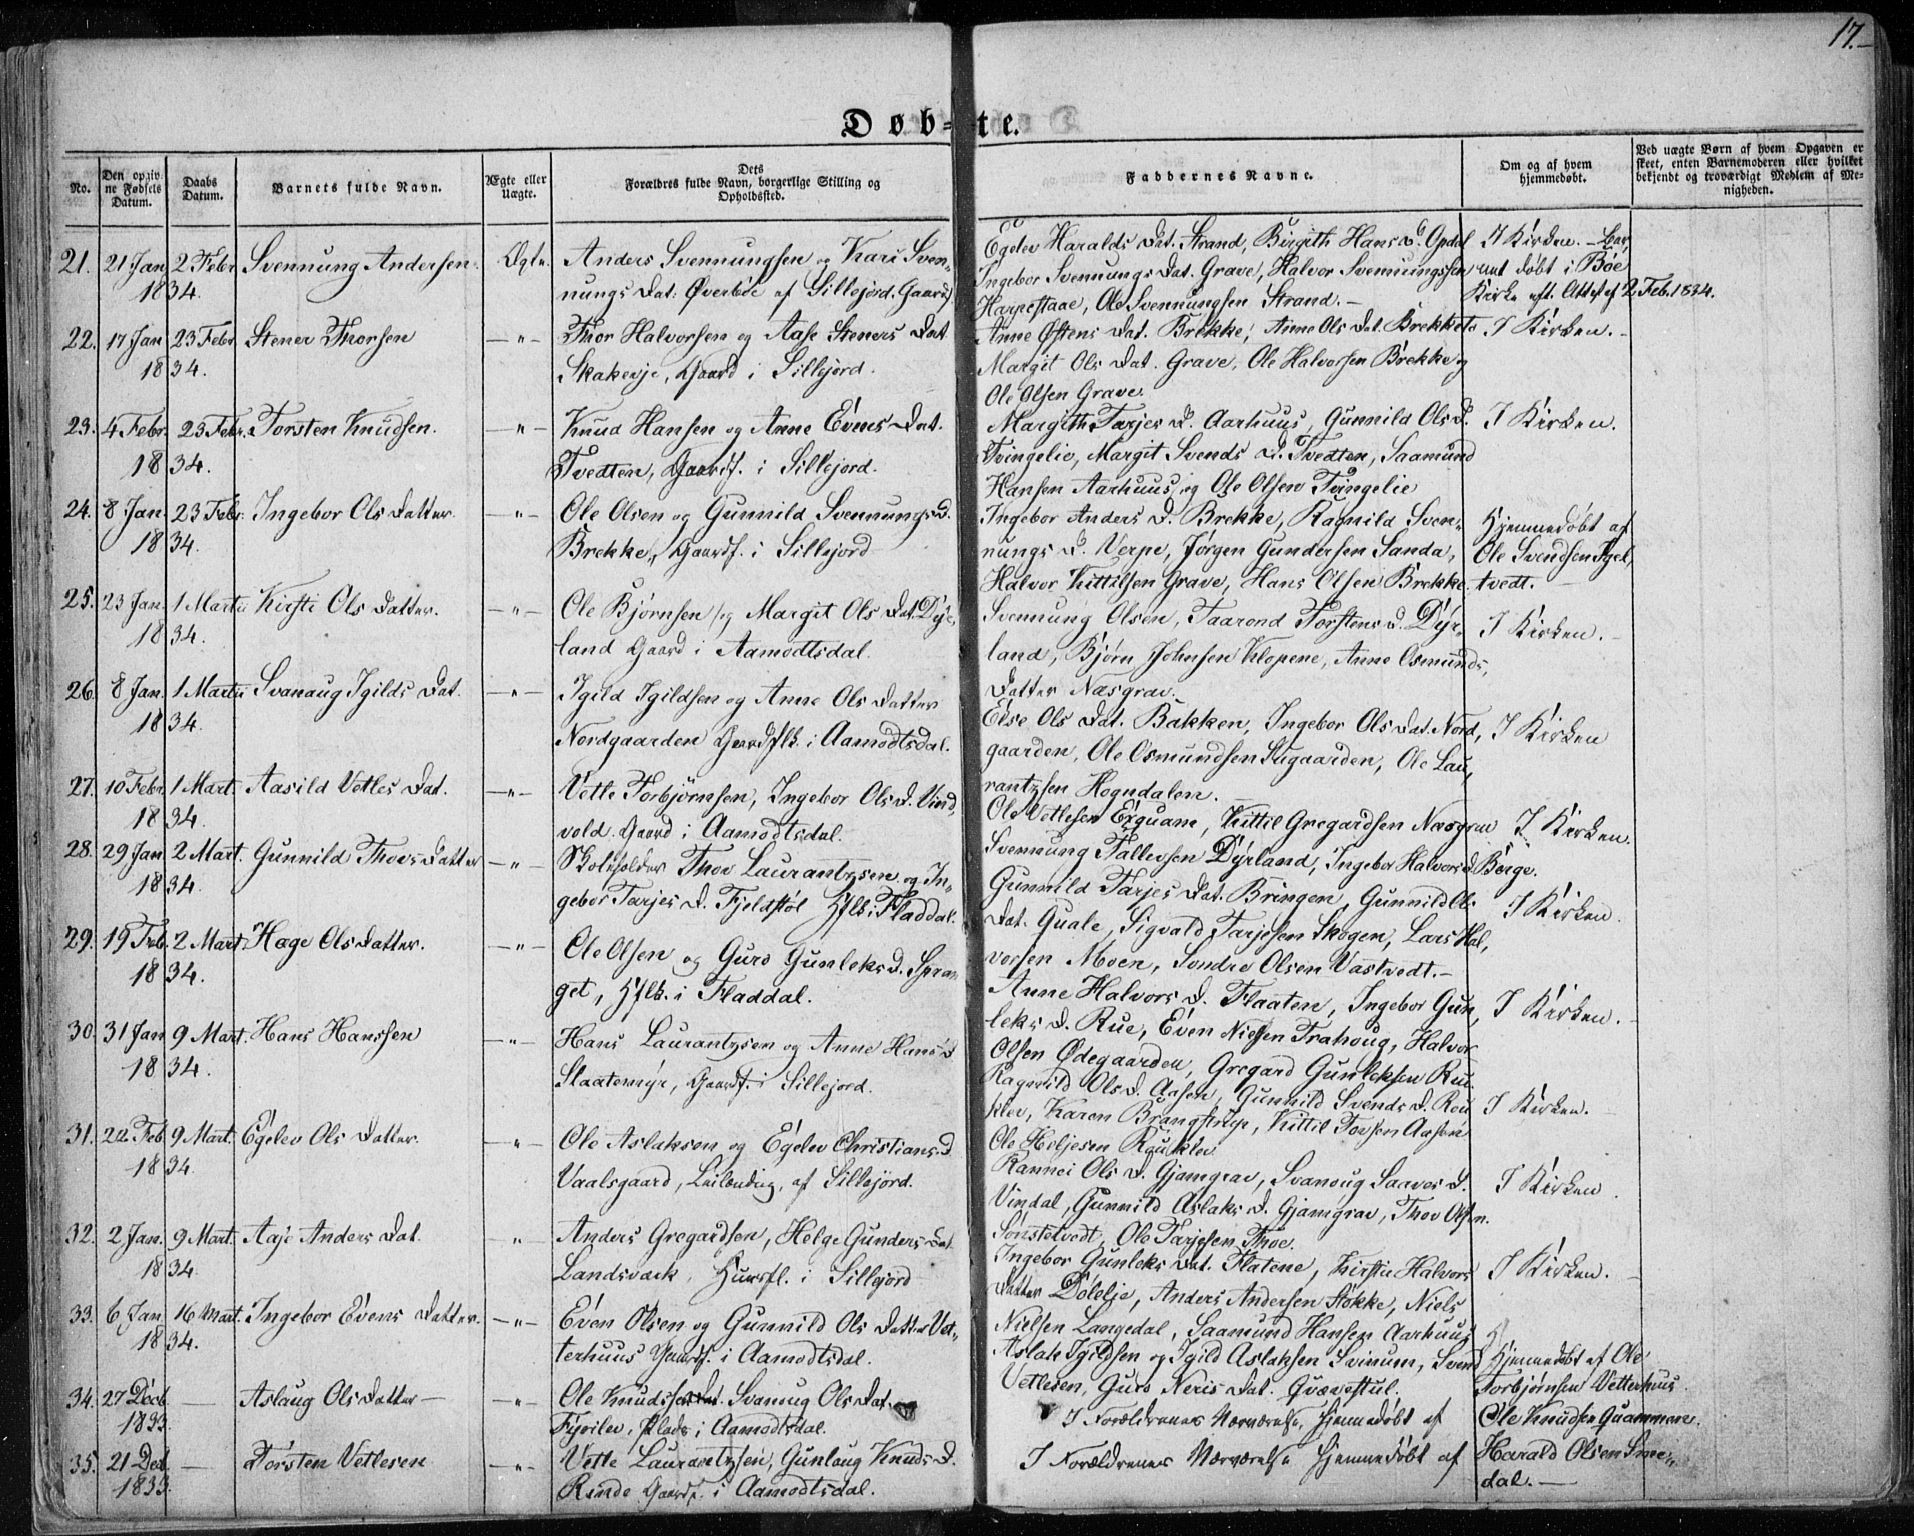 17.
Døb-te.
No.
Den opgivne Fødsels Datum.
Daabs Datum.
Barnets fulde Navn.
Ægte eller Uægte.
Dets Forældres fulde Navn, borgerlige Stilling og Opholdssted.
Faddernes Navne.
Om og af hvem hjemmedøbt.
Ved uægte Børn af hvem Opgaven er skeet, enten Barnemoderen eller hvilket bekjendt og troværdigt Medlem af Menigheden.
21. 21 Jan 2 Febr Svennung Andersen. Anders Svennungsen og Kari Sven-
1834. nungs Dat: Øverbøe af Sillejord. Gaardf.
Egelev Haralds Dat. Strand, Birgith Hans D. Opdal I Kirken. Bar-
Ingebor Svennungs Dat. Grave, Halvor Svennungssen net døbt i Bøe
Harpestaae, Ole Svennungsen Strand. Kirke eft. Attest af 2 Feb. 1834.
22. 17 Jan 23 Febr. Stener Thorsen —"— Thor Halvorsen og Aase Steners Dat
1834. Skakevje, Gaard i Sillejord.
Anne Østens Dat. Brekke, Anne Ols Dat. Brekketo I Kirken.
Margit Ols Dat. Grave, Ole Halvorsen Brekke og
Ole Olsen Grave.
23. 4 Febr. 23 Febr. Torsten Knudsen. —"— Knud Hansen og Anne Evens Dat.
1834. Tvedten, Gaardf. i Sillejord.
Margith Tarjes D. Aarhuus, Gunnild Ols D. I Kirken.
Tvingelie, Margit Svends D. Tvedten, Saamund
Hansen Aarhuus og Ole Olsen Tvingelie
24. 8 Jan. 23 Febr. Ingebor Ols Datter. —"— Ole Olsen og Gunnild Svennungs D.
1834. Brekke, Gaardf. i Sillejord
Ingebor Anders D. Brekke, Ragnild Sven- Hjemmedøbt af
nungs D. Verpe, Jørgen Gundersen Sanda, Ole Svendsen Igel-
Halvor Kittilsen Grave, Hans Olsen Brekke. tvedt.
25. 23 Jan. 1 Martii Kirsti Ols Datter. —"— Ole Bjørnsen og Margit Ols Dat. Dyr-
1834. land Gaard i Aamodtsdal.
Svennung Olsen, Taarond Torstens D. Dyr- I Kirken.
land, Bjørn Johnsen Klopene, Anne Osmunds
Datter Næsgrav.
26. 8 Jan. 1 Martii Svanaug Igilds Dat. —"— Igild Igildsen og Anne Ols Datter
1834. Nordgaarden i Aamodtsdal.
Else Ols Dat. Bakken, Ingebor Ols Dat. Nord- I Kirken
gaarden, Ole Osmundsen Uigaarden, Ole Lau-
rantzsen Hogndalen.
27. 10 Febr. 1 Mart. Aasild Vetles Dat. —"— Vetle Torbjørnsen, Ingebor Ols D. Vind-
1834. vold. Gaard i Aamodtsdal.
Ole Vetlesen Exquame, Kittil Gregardsen Næsgrav I Kirken.
Svennung Tallevsen Dyrland, Ingebor Halvors D. Berge.
28. 29 Jan 2 Mart. Gunnild Thors Datter —"— Skoleholder Thor Laurantzsen og In-
1834. gebor Tarjes D. Fjeldstøl i Fladdal.
Gunnild Tarjes Dat. Bringen, Gunnild Ols I Kirken.
Dat. Quale, Sigvald Tarjesen Skogen, Lars Hal-
vorsen Moen, Sondre Olsen Vastvedt.
29. 19 Feb. 2 Mart. Hæge Ols Datter. —"— Ole Olsen og Guro Gunleks D. Spran-
1834. get, i Fladdal.
Anne Halvors D. Flaaten, Ingebor Gun- I Kirken.
leks D. Rue, Even Nielsen Trahoug, Halvor
Olsen Ødegaarden, Gregard Gunleksen Rue
30. 31 Jan 9 Mart. Hans Hanssen —"— Hans Laurantzsen og Anne Hans D
1834. Slaatemyr, Gaardf. i Sillejord.
Ragnild Ols D. Aasen, Gunnild Svends D. Rou- I Kirken.
klev, Karen Kittil Torsen Aasen
Ole Heljesen Rouklev
31. 22 Feb 9 Mart. Egelev Ols Datter. —"— Ole Aslaksen og Egelev Christians D
1834. Vaalsgaard, Leilænding, af Sillejord.
Rannei Ols D. Gjamgrav, Svanoug Saaves D. I Kirken.
Vindal, Gunnild Aslaks D. Gjamgrav, Thor Olsen.
Sønstetvedt, Ole Tarjesen Thoe.
32. 2 Jan. 9 Mart. Aase Anders Dat. " Anders Gregardsen, Helge Gunders Dat
1834. Landsværk, i Sillejord
Ingebor Gunleks Dat. Flatene, Kirstie Halvors I Kirken.
Datter Dølelie, Anders Andersen Høkke, Niels
Nielsen Langedal, Saamund Hansen Aarhuus
33. 6 Jan 16 Mart. Ingebor Evens Datter. —"— Even Olsen og Gunnild Ols Datter Vet-
1834. terhuus Gaardf. i Aamodtsdal.
Aslak Igildsen og Igild Aslaksen Svinum, Svend Hjemmedøbt af Ole
Vetlesen, Guro Neris Dat. Qvævestul. Torbjørnsen Vetterhuus.
34. 27 Decb — Aslaug Ols Datter —"— Ole Knudssen Svanoug Ols Dat.
1833. Fyrilev, Plads i Aamodtsdal.
I Forældrenes Nærværelse hjemmedøbt af Ole Knudsen Quammen.
35. 21 Dec — Torsten Vetlesen —"— Vetle Laurantzsen, Gunlaug Knuds D.
1833. Rinde Gaardf. i Aamodtsdal.
I Forældrenes Nærværelse hjemmedøbt af Harald Olsen Sme-
dal.